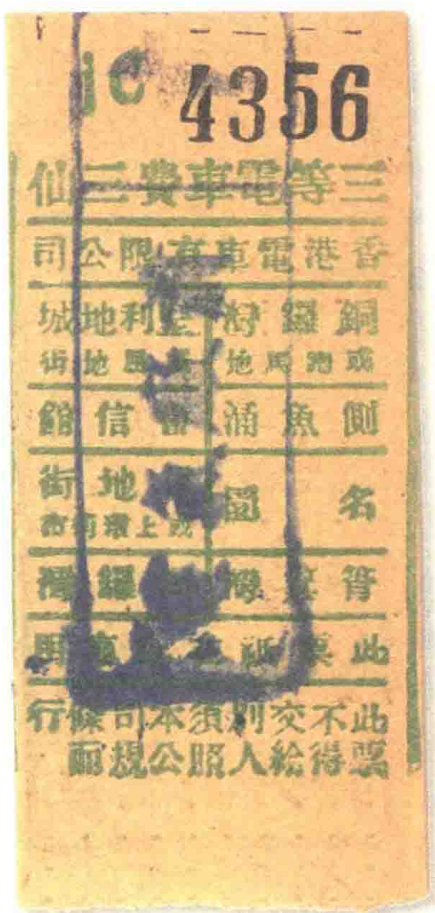 4356
三等電車費三仙
香港電車有限公司
銅鑼灣 堅利地城
或跑馬地 地街
側魚涌 書信館
名園 地街
筲箕灣 銅鑼灣
此票祇 車用
此不交別須本司條行
票得給人照公規而